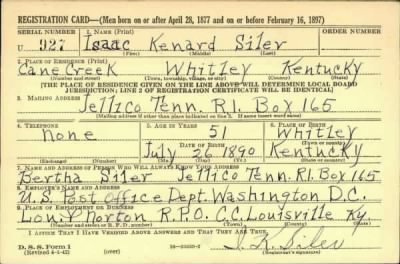 REGISTRATION CARD—(Men born on or after April 28, 1877 and on or before February 16, 1897)
SERIAL NUMBER 1. NAME (Print) ORDER NUMBER
U 927 Isaac Kenard Siler
(First) (Middle) (Last)
2. PLACE OF RESIDENCE (Print)
Cane Creek Whitley Kentucky
(Number and street) (Town, township, village, or city) (County) (State)
[THE PLACE OF RESIDENCE GIVEN ON THE LINE ABOVE WILL DETERMINE LOCAL BOARD
JURISDICTION; LINE 2 OF REGISTRATION CERTIFICATE WILL BE IDENTICAL]
3. MAILING ADDRESS
Jellico Tenn. R1. Box 165
[Mailing address if other than place indicated on line 2. If same insert word same]
4. TELEPHONE 5. AGE IN YEARS 6. PLACE OF BIRTH
none 51 Whitley
DATE OF BIRTH (Town or county)
July 26 1890 Kentucky
(Exchange) (Number) (Mo.) (Day) (Yr.) (State or country)
7. NAME AND ADDRESS OF PERSON WHO WILL ALWAYS KNOW YOUR ADDRESS
Bertha Siler Jellico Tenn. R1. Box 165
8. EMPLOYER'S NAME AND ADDRESS
U.S. Post Office Dept. Washington D.C.
9. PLACE OF EMPLOYMENT OR BUSINESS
Lou. & Norton R.P.O. C.C. Louisville Ky.
(Number and street or R. F. D. number) (Town) (County) (State)
I AFFIRM THAT I HAVE VERIFIED ABOVE ANSWERS AND THAT THEY ARE TRUE.
D. S. S. Form 1
(Revised 4-1-42) (over) I. K. Siler
(Registrant's signature)